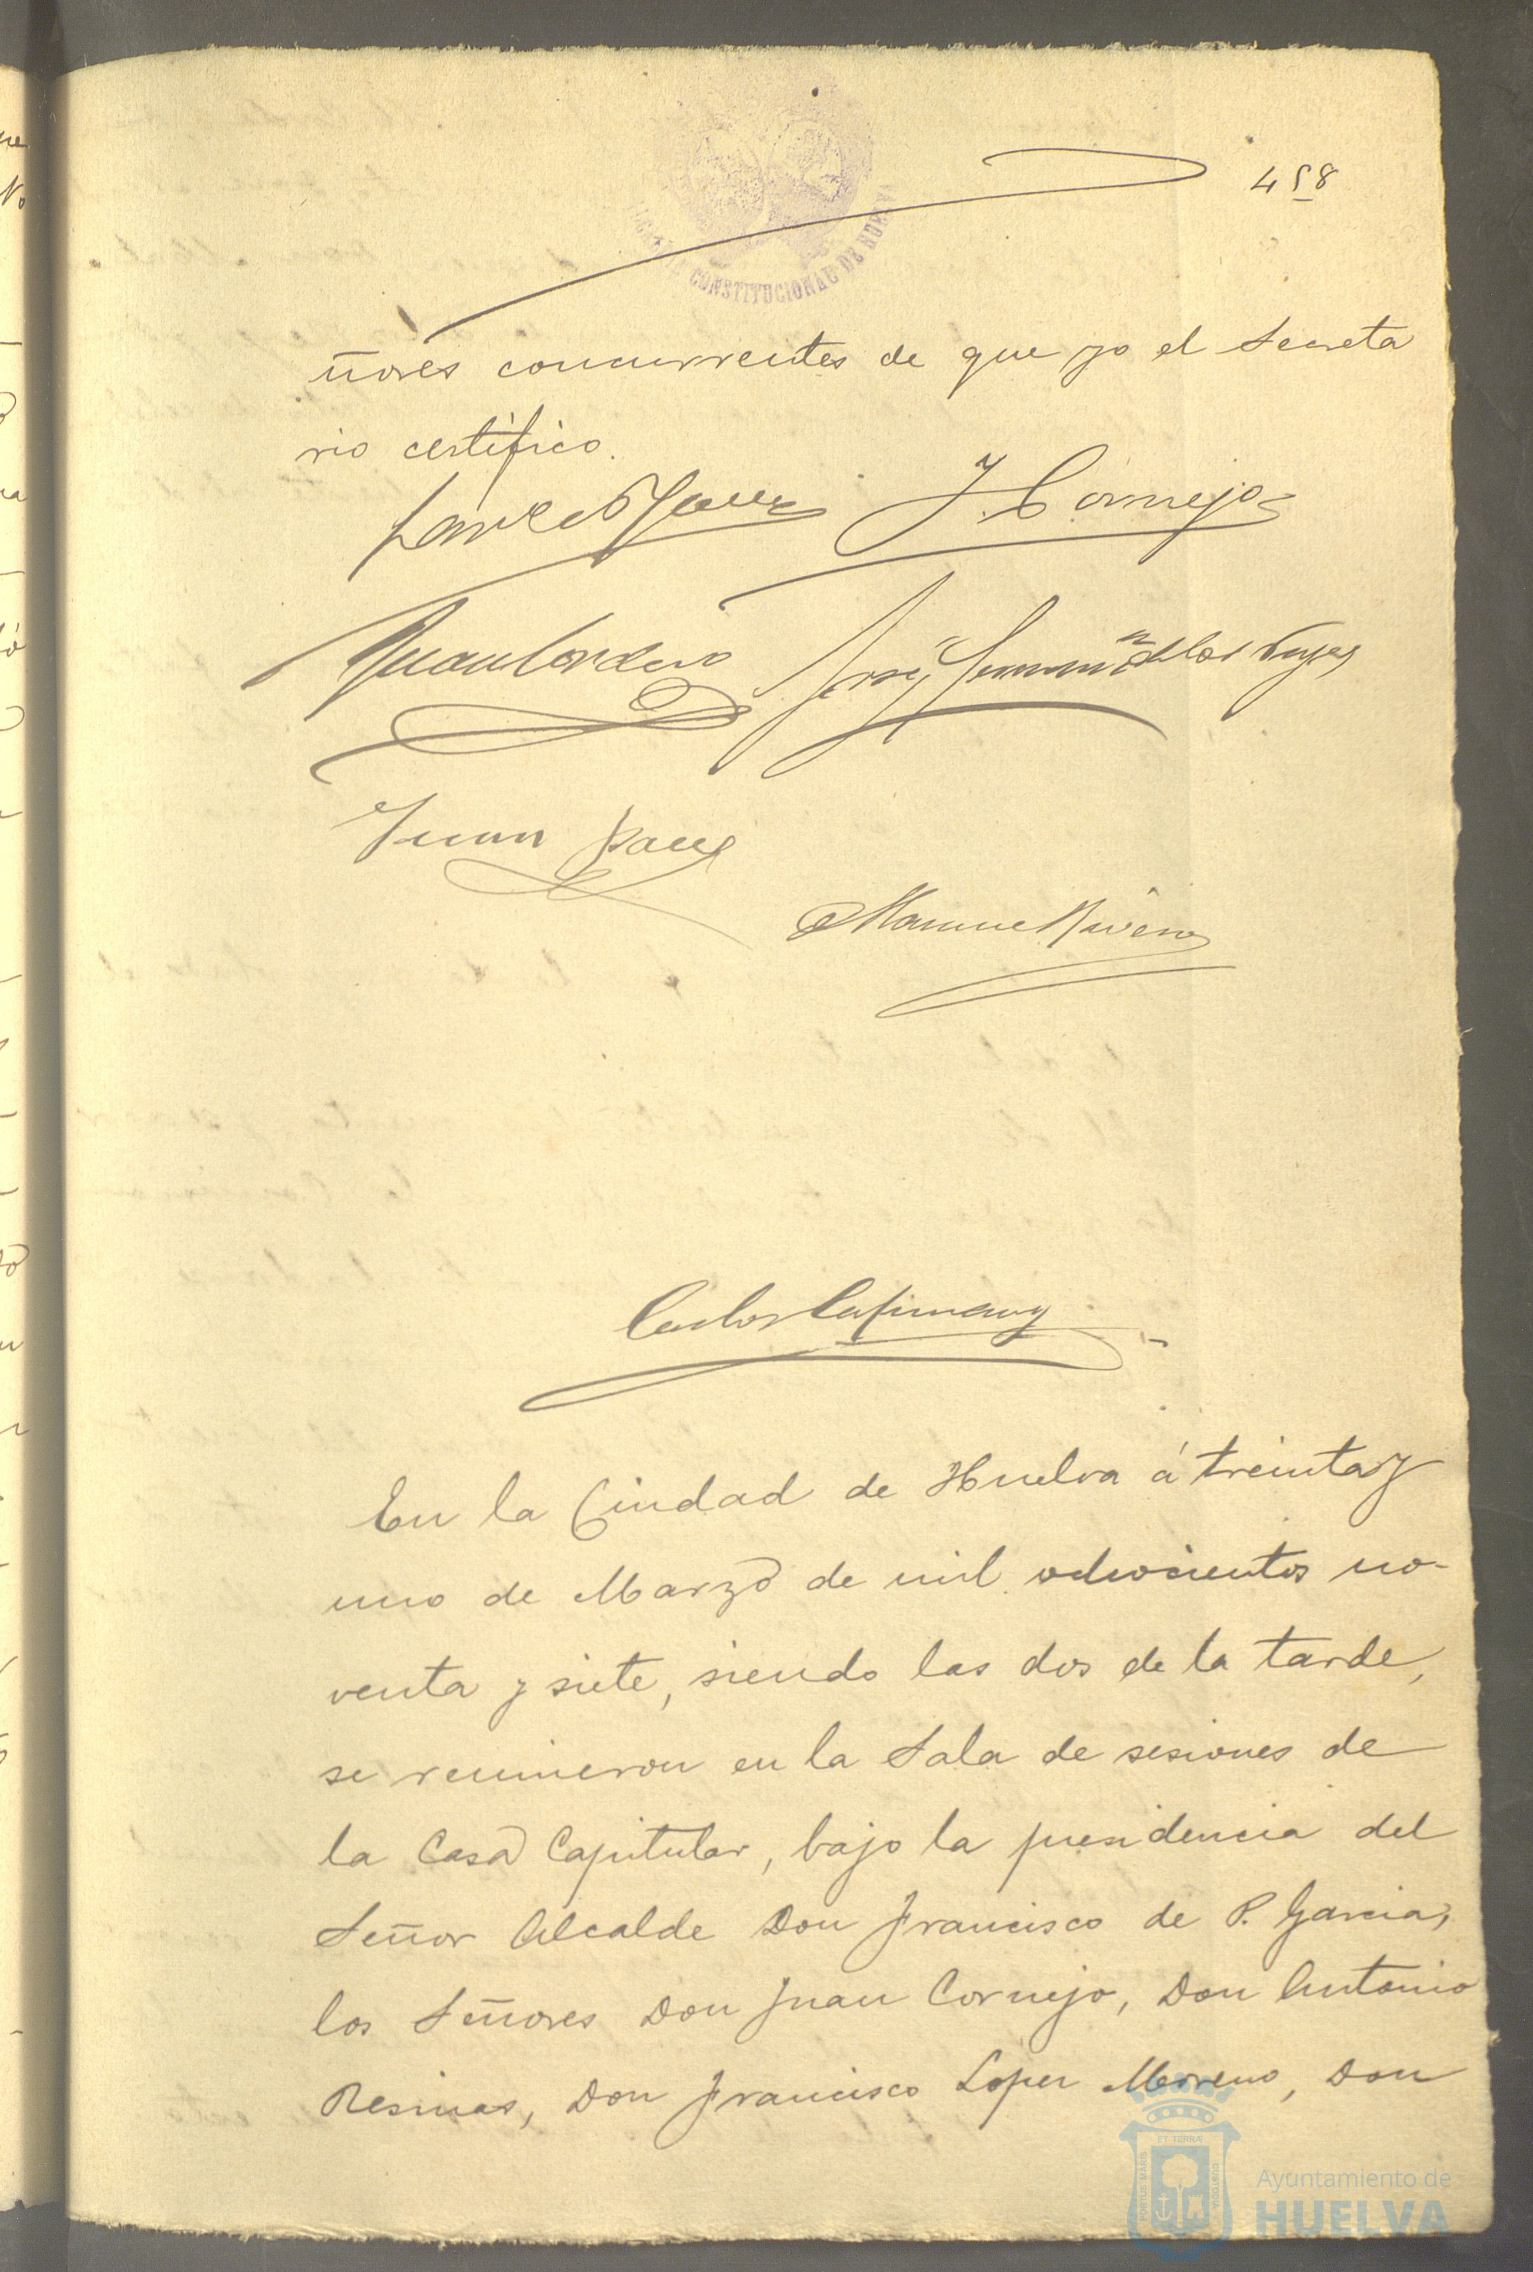 458
CONSTITUCIONAL DE HUELVA
ñores concurrentes de que yo el Secreta
rio certifico.
J. Cornejo
Juan Cordero
José
Juan
Manuel Rivero
Carlos
En la Ciudad de Huelva á treinta y
uno de Marzo de mil ochocientos no-
venta y siete, siendo las dos de la tarde,
se reunieron en la Sala de sesiones de
la Casa Capitular, bajo la presidencia del
Señor Alcalde Don Francisco de P. Garcia,
los Señores Don Juan Cornejo, Don Antonio
Resinas, Don Francisco Lopez Moreno, Don
Ayuntamiento de
HUELVA